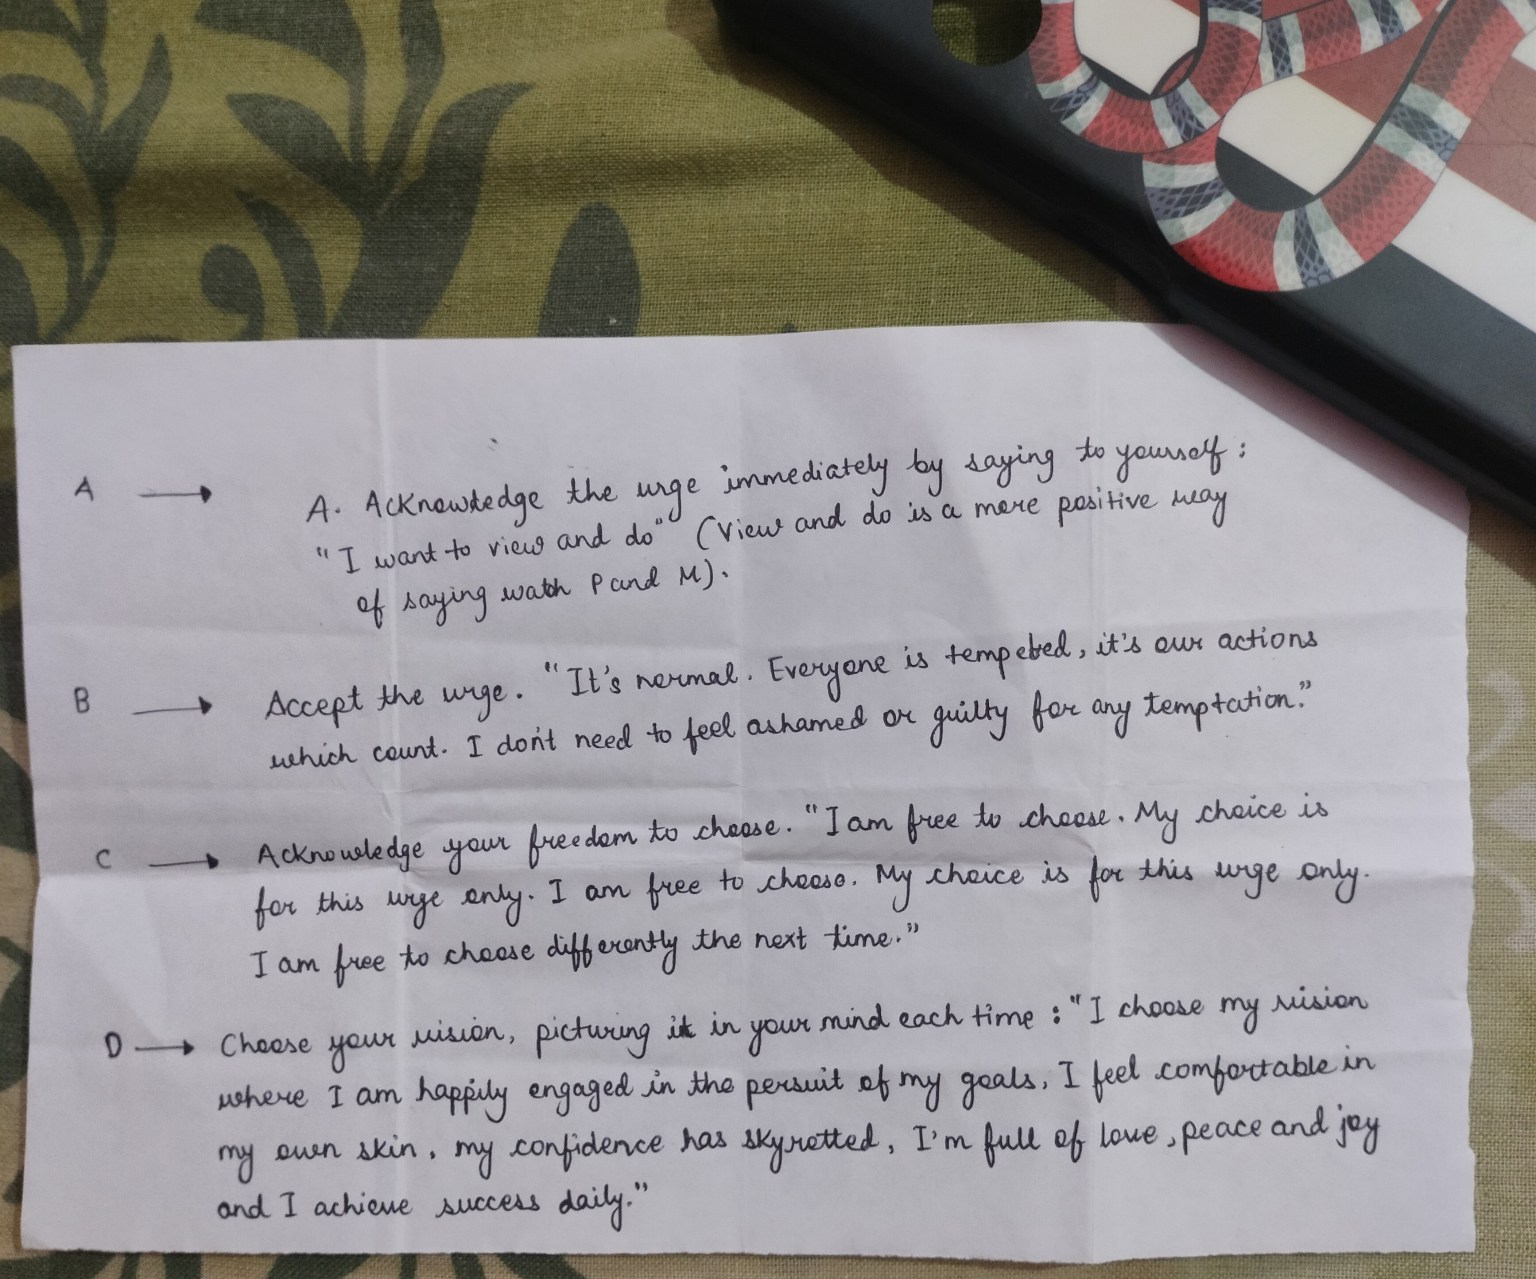 A → A. Acknowledge the urge immediately by saying to yourself :
"I want to view and do" (View and do is a more positive way
of saying watch P and M).
B → Accept the urge. "It's normal. Everyone is tempeted, it's our actions
which count. I don't need to feel ashamed or guilty for any temptation."
C → Acknowledge your freedom to choose. "I am free to choose. My choice is
for this urge only. I am free to choose. My choice is for this urge only.
I am free to choose differently the next time."
D → Choose your vision, picturing it in your mind each time : "I choose my vision
where I am happily engaged in the persuit of my goals, I feel comfortable in
my own skin, my confidence has skyrotted, I'm full of love, peace and joy
and I achieve success daily."